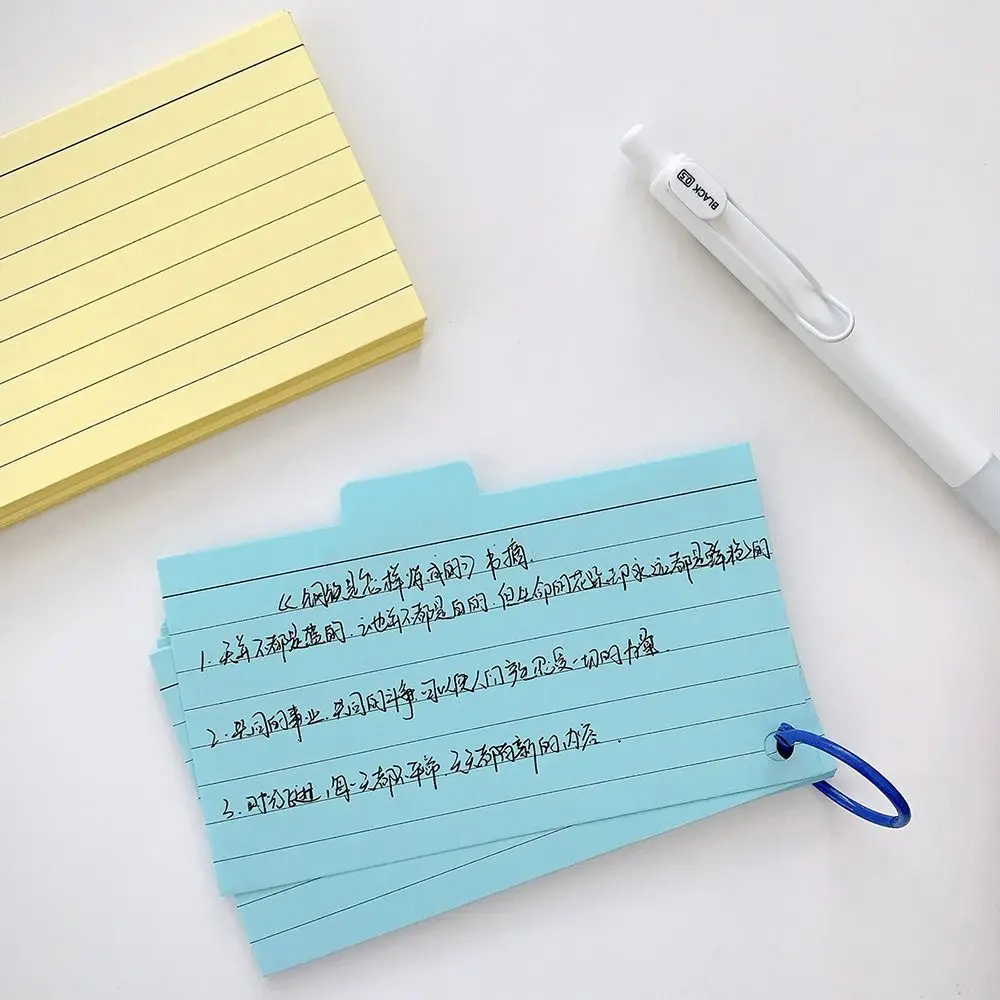 《钢铁是怎样炼成的》书摘.
1. 天并不都是蓝的, 云也并不都是白的, 但生命的花朵却永远都是鲜艳的
2. 共同的事业, 共同的斗争, 可以使人们产生忍受一切的力量
3. 时 每一天都不 天天都有新的内容.
BLACK 0.5